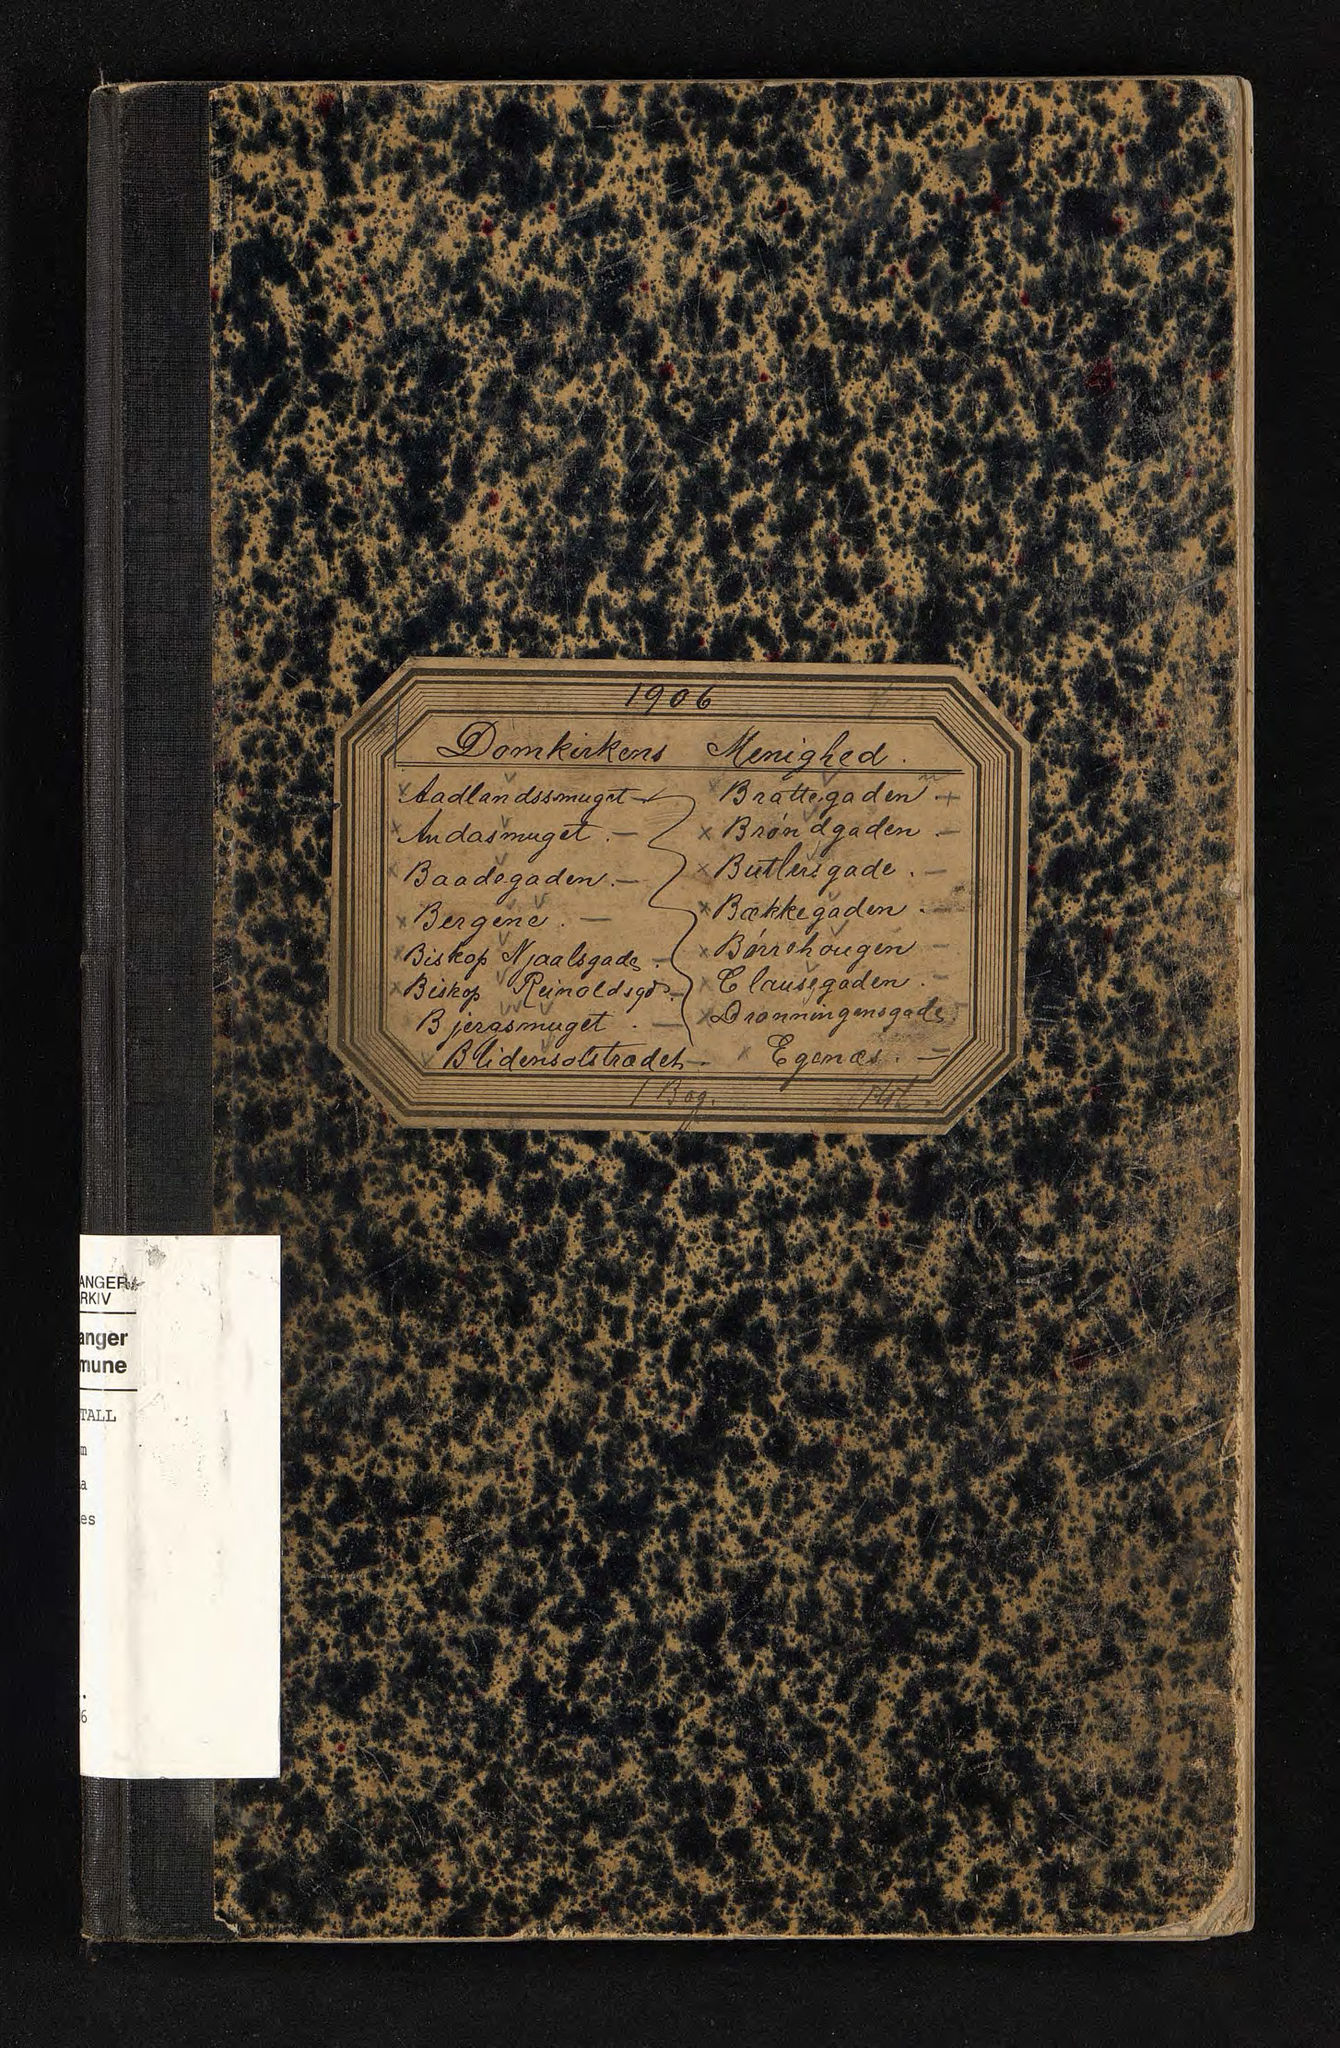 1906
Domkirkens Menighed.
Aadlandssmuget —
Andasmuget. —
Baadegaden. —
Bergene. —
Biskop Njaalsgade. —
Biskop Reinoldsgd. —
Bjergsmuget. —
Blidensolstrædet —.
× Brattegaden —
× Brøndgaden. —
× Butlersgade. —
× Bækkegaden. —
× Børrehougen —
× Clausegaden. —
× Dronningensgade
× Egenæs. —
1 Bog.
ANGER
RKIV
anger
mune
TALL
m
a
es
.
6